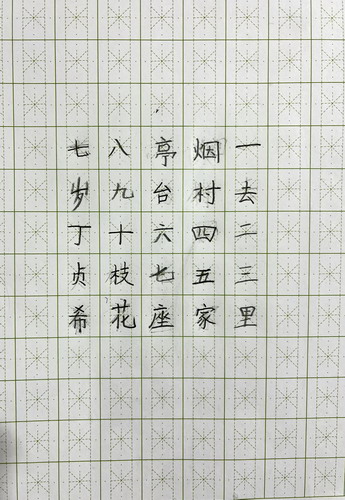 一去二三里
烟村四五家
亭台六七座
八九十枝花
七岁丁贞希